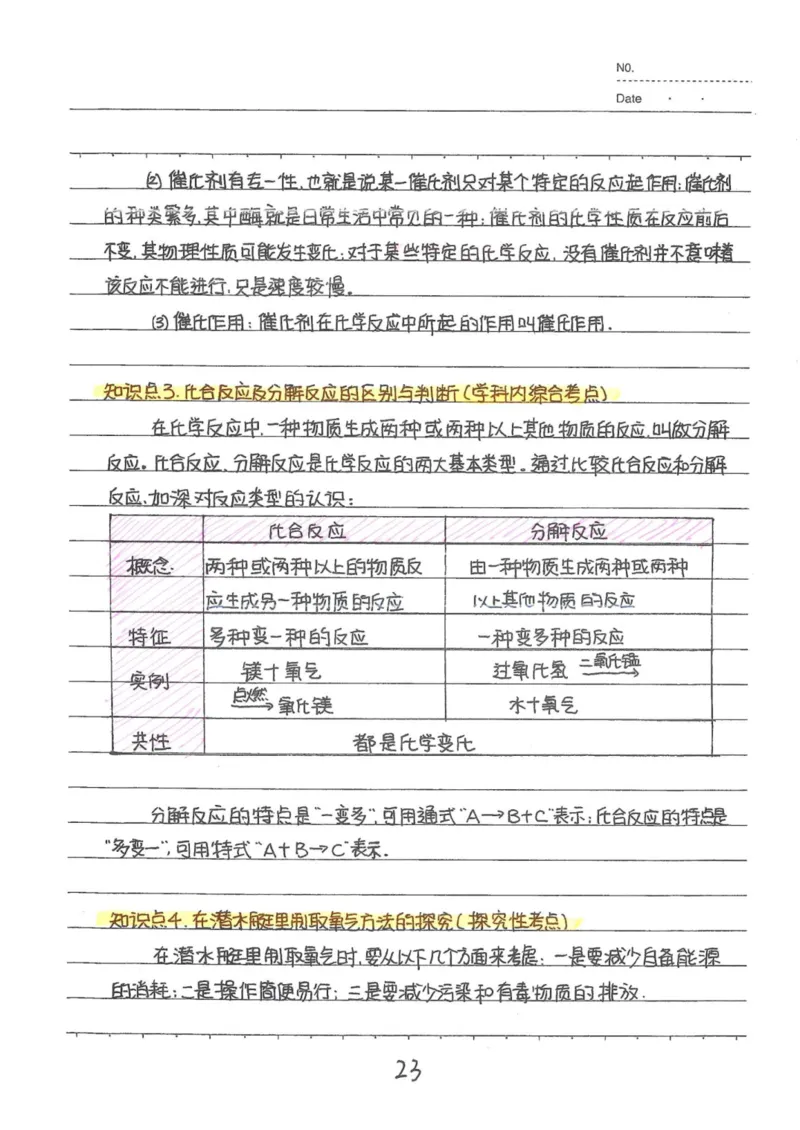 NO.
Date · ·
(2) 催化剂有专一性,也就是说某一催化剂只对某个特定的反应起作用;催化剂
的种类繁多,其中酶就是日常生活中常见的一种;催化剂的化学性质在反应前后
不变,其物理性质可能发生变化;对于某些特定的化学反应,没有催化剂并不意味着
该反应不能进行,只是速度较慢。
(3) 催化作用:催化剂在化学反应中所起的作用叫催化作用.
知识点3.化合反应及分解反应的区别与判断(学科内综合考点)
在化学反应中,一种物质生成两种或两种以上其他物质的反应,叫做分解
反应。化合反应、分解反应是化学反应的两大基本类型。通过比较化合反应和分解
反应,加深对反应类型的认识:
化合反应 分解反应
概念 两种或两种以上的物质反 由一种物质生成两种或两种
应生成另一种物质的反应 以上其他物质的反应
特征 多种变一种的反应 一种变多种的反应
实例 镁+氧气 过氧化氢 二氧化锰→
点燃→ 氧化镁 水+氧气
共性 都是化学变化
分解反应的特点是"一变多",可用通式"A→B+C"表示;化合反应的特点是
"多变一",可用特式"A+B→C"表示.
知识点4.在潜水艇里制取氧气方法的探究(探究性考点)
在潜水艇里制取氧气时,要从以下几个方面来考虑:一是要减少自备能源
的消耗;二是操作简便易行;三是要减少污染和有毒物质的排放.
23